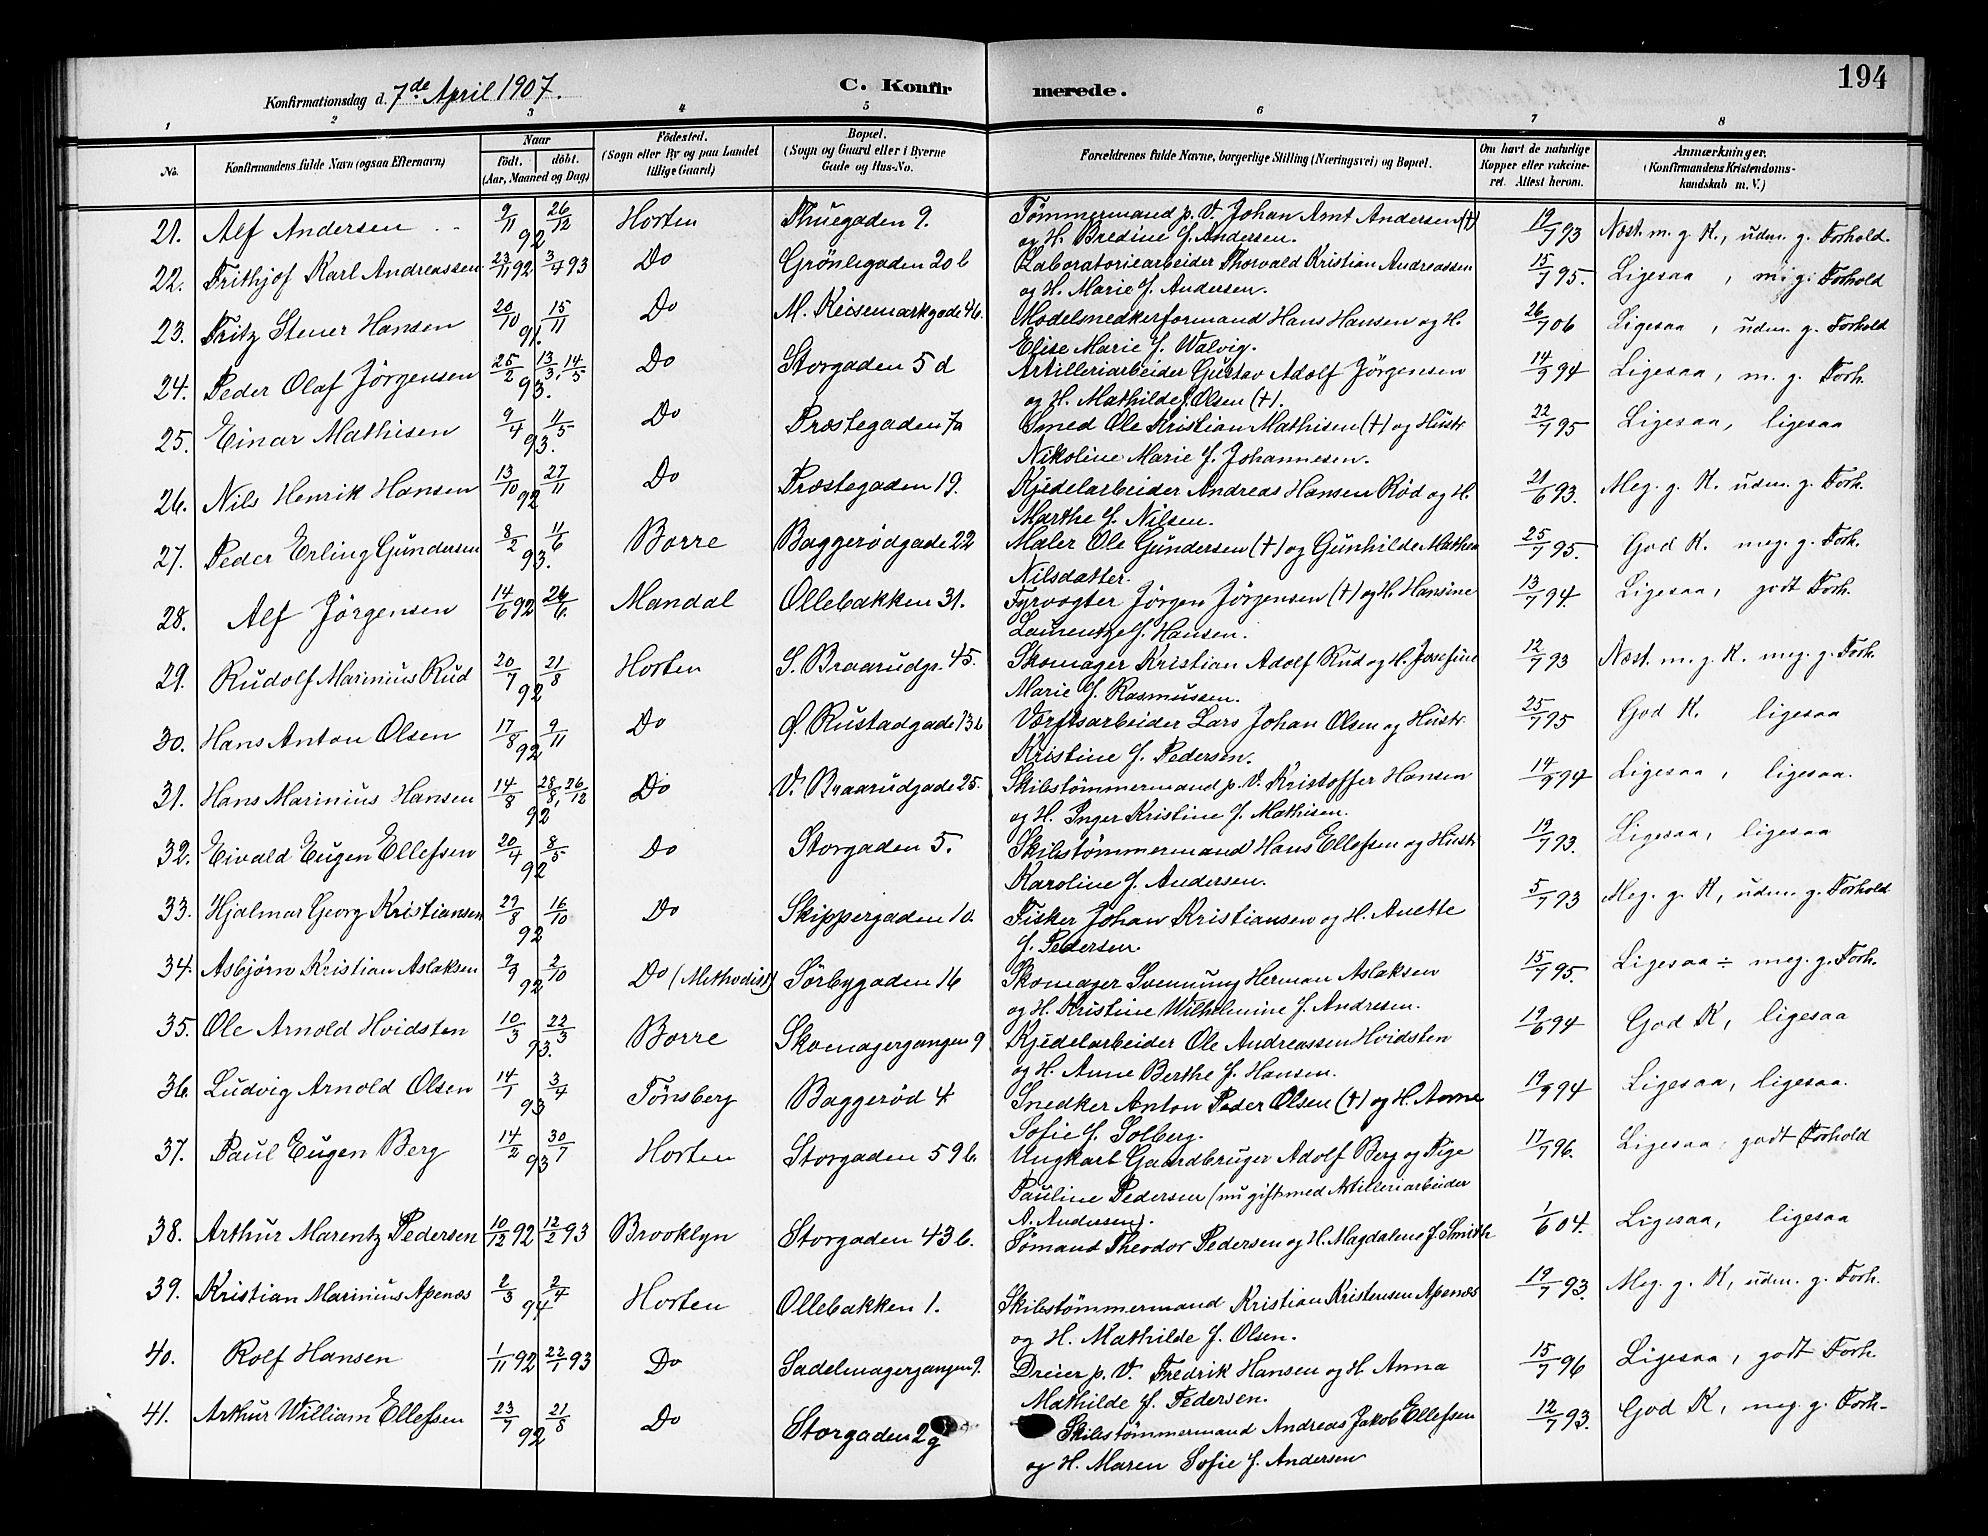 194
Konfirmationsdag d. 7de April 1907. C. Konfirmerede.
1 2 3 4 5 6 7 8
No. Konfirmandens fulde Navn (ogsaa Efternavn) Naar født, døbt. (Aar, Maaned og Dag) Fødested. (Sogn eller By og paa Landet tillige Gaard) Bopæl. (Sogn og Gaard eller i Byerne Gade og Hus-No. Forældrenes fulde Navne, borgerlige Stilling (Næringsvei) og Bopæl. Om havt de naturlige Kopper eller vakcineret. Attest herom. Anmærkninger. (Konfirmandens Kristendomskundskab m. V.)
21. Alf Andersen 9/11 26/12 92 Horten Thuegaden 9. Tömmermand p. V. Johan Arnt Andersen (†) og H. Bredine f. Andersen. 19/7 93 Næst. m. g. K., udm. g. Forhold.
22. Frithjof Karl Andreassen 23/11 92 3/4 93 Do Grönlegaden 20 b Laboratoriearbeider Thorvald Kristian Andreassen og H. Marie f. Andersen. 15/7 95. Ligesaa, m. g. Forhold
23. Fritz Stener Hansen 20/10 15/11 91. Do M. Keisemarkgade 46. Modelsnedkerformand Hans Hansen og H. Elise Marie f. Walvig. 26/7 06 Ligesaa, udm. g. Forhold
24. Peder Olaf Jörgensen 25/2 13/3, 14/5 93. Do Storgaden 5 d Artilleriarbeider Gustav Adolf Jörgensen og H. Mathilde f. Olsen (†). 14/9 94 Ligesaa, m. g. Forh.
25. Einar Mathisen 9/4 11/5 93. Do Præstegaden 7a Smed Ole Kristian Mathisen (†) og Hustr Nikoline Marie f. Johannesen. 22/7 95 Ligesaa, ligesaa
26. Nils Henrik Hansen 13/10 27/11 92 Do Præstegaden 19. Kjedelarbeider Andreas Hansen Röd og H. Marthe f. Nilsen. 21/6 93. Meg. g. K. udm. g. Forh.
27. Peder Erling Gundersen 8/2 11/6 93. Borre Baggerödgade 22 Maler Ole Gundersen (†) og Gunhilde Mathea Nilsdatter. 25/7 95. God K. meg. g. Forh.
28. Alf Jörgensen 14/6 92 26/6. Mandal Ollebakken 31. Fyrvogter Jörgen Jörgensen (†) og H. Hansine Laurentze f. Hansen. 13/7 94. Ligesaa, godt Forh.
29. Rudolf Marinius Rud 20/7 21/8 92 Horten S. Braarudg. 45. Skomager Kristian Adolf Rud og H. Josefine Marie f. Rasmussen. 12/7 93 Næst. m. g. K. meg. g. Forh.
30. Hans Anton Olsen 17/8 9/11 92 Do Ø. Rustadgade 13 b Værftsarbeider Lars Johan Olsen og Hustr. Kristine f. Pedersen. 25/7 95 God K. ligesaa
31. Hans Marinius Hansen 14/8 28/8, 26/12 92 Do V. Braarudgade 25. Skibstömmermand p. V. Kristoffer Hansen og H. Inger Kristine f. Mathisen. 14/9 94 Ligesaa, ligesaa.
32. Eivald Eugen Ellefsen 20/4 8/5 92 Do Storgaden 5. Skibstömmermand Hans Ellefsen og Hustr Karoline f. Andersen. 19/7 93. Ligesaa, ligesaa
33. Hjalmar Georg Kristiansen 29/8 16/10 92 Do Skippergaden 10. Fisker Johan Kristiansen og H. Anette f. Pedersen. 5/7 93 Meg. g. K, udm. g. Forhold
34. Asbjörn Kristian Aslaksen 9/9 2/10 92 Do (Methodist) Sörbygaden 16 Skomager Svennung Herman Aslaksen og H. Kristine Wilhelmine f. Andresen. 15/7 95. Ligesaa ÷ meg. g. Forh.
35. Ole Arnold Hvidsten 10/3 22/3 93. Borre Skomagergangen 9 Kjedelarbeider Ole Andreassen Hvidsten og H. Anne Berthe f. Hansen. 19/6 94 God K, ligesaa
36. Ludvig Arnold Olsen 14/1 3/4 93 Tönsberg Baggeröd 4 Snedker Anton Peder Olsen (†) og H. Anne Sofie f. Solberg. 19/9 94 Ligesaa, ligesaa.
37. Paul Eugen Berg 14/2 30/7 93 Horten Storgaden 59 b. Ungkarl Gaardbruger Adolf Berg og Pige Pauline Pedersen (nu gift med Artilleriarbeider A. Andersen). 17/7 96. Ligesaa, godt Forhold
38. Arthur Marentz Pedersen 10/12 92 12/2 93 Brooklyn Storgaden 43 b. Sömand Theodor Pedersen og H. Magdalene f. Smith 1/6 04. Ligesaa, ligesaa
39. Kristian Marinius Apenæs 2/3 2/4 94 Horten Ollebakken 1. Skibstömmermand Kristian Kristensen Apenæs og H. Mathilde f. Olsen. 19/7 93. Meg. g. K, udm. g. Forh.
40. Rolf Hansen 1/11 92 22/1 93 Do Sadelmagergangen 9. Dreier p. V. Fredrik Hansen og H. Anna Mathilde f. Pedersen. 15/7 96 Ligesaa, godt Forh.
41. Arthur William Ellefsen 23/7 21/8 92 Do Storgaden 2 g Skibstömmermand Andreas Jakob Ellefsen og H. Maren Sofie f. Andersen 12/7 93. God K, meg. g. Forh.